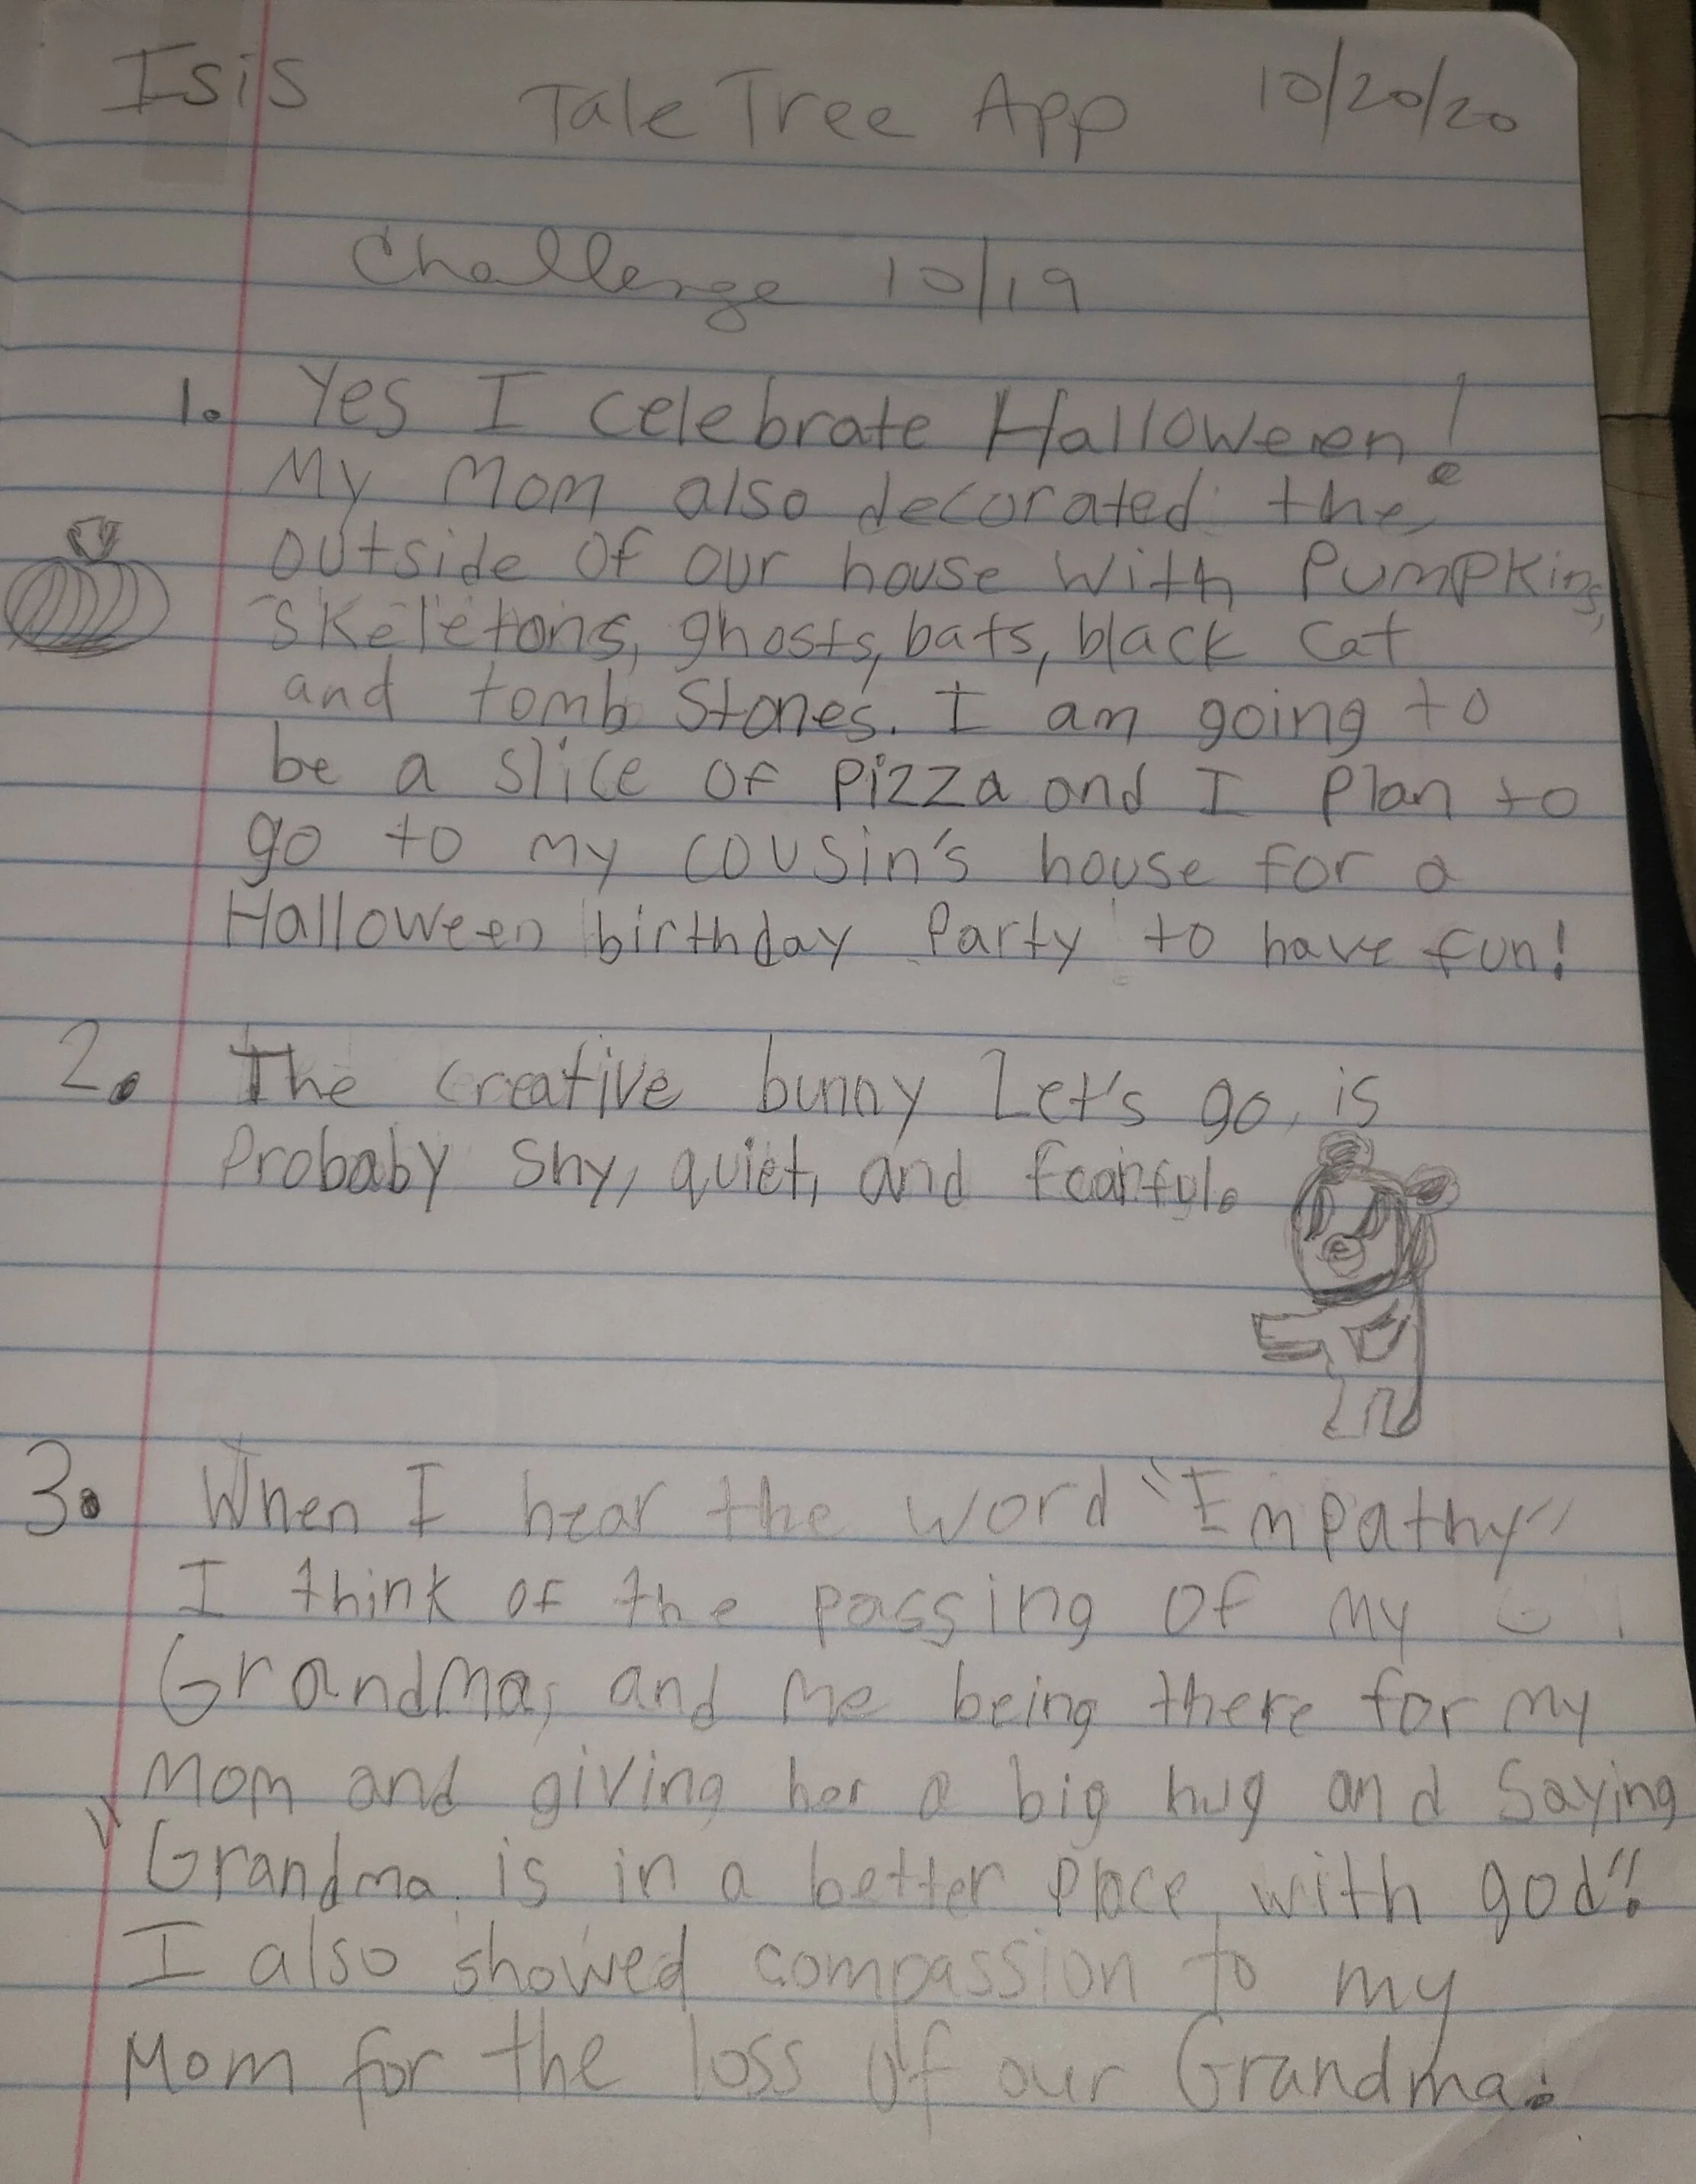 Isis Tale Tree App 10/20/20
Challenge 10/19
1. Yes I celebrate Halloween!
My Mom also decorated the
outside of our house with Pumpkins,
skeletons, ghosts, bats, black cat
and tomb stones. I am going to
be a slice of pizza and I Plan to
go to my cousin's house for a
Halloween birthday Party to have fun!
2. The creative bunny Let's go, is
Probaby shy, quiet, and fearful.
3. When I hear the word "Empathy"
I think of the passing of my
Grandma, and me being there for my
Mom and giving her a big hug and Saying
"Grandma is in a better place with god".
I also showed compassion to my
Mom for the loss of our Grandma.